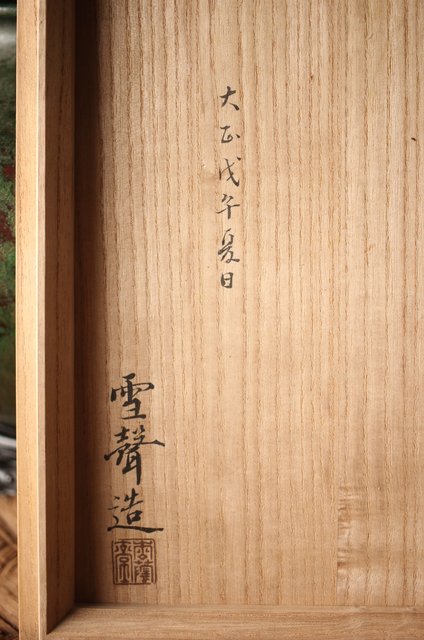 大正戊午夏日
雪聲造